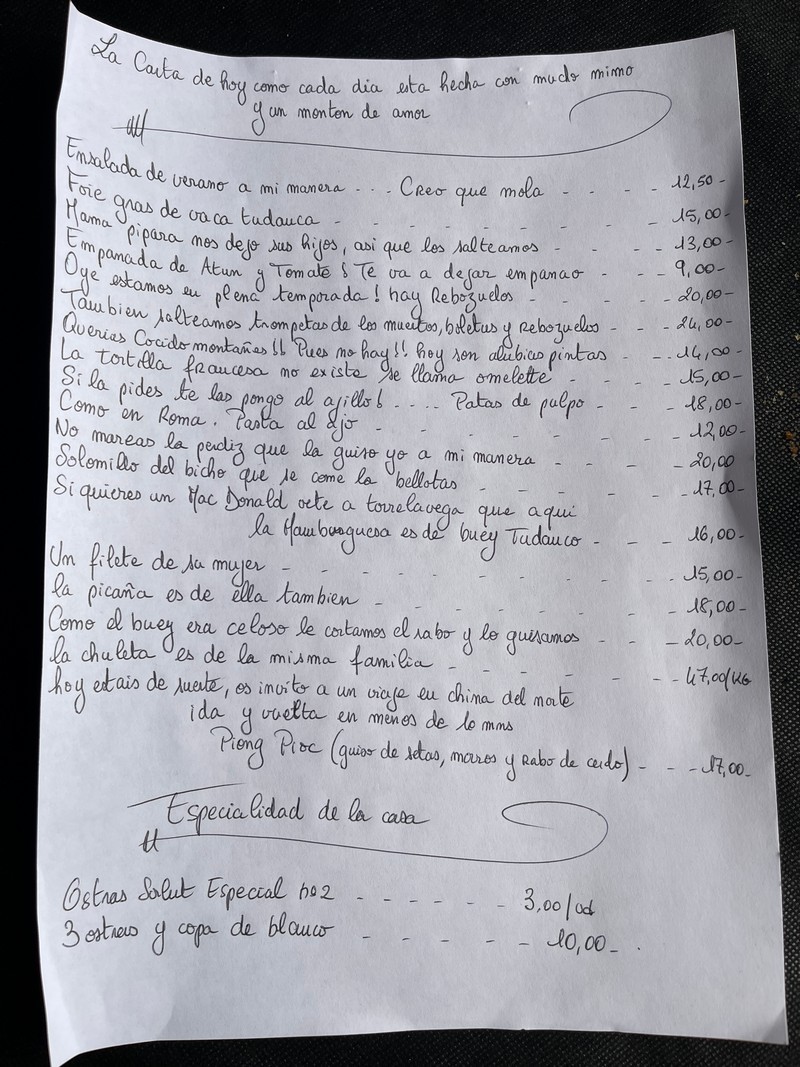 La Carta de hoy como cada dia esta hecha con mucho mimo
y un monton de amor
Ensalada de verano a mi manera ... Creo que mola - - - - 12,50-
Foie gras de vaca tudauca - - - - - - - - 15,00-
Mama pipara nos dejo sus hijos, asi que los salteamos - - - - 13,00-
Empanada de Atun y Tomate ! Te va a dejar empanao - - - 9,00-
Oye estamos en plena temporada ! hay Rebozuelos - - - - 20,00-
Tambien salteamos trompetas de los muertos, boletus y Rebozuelos - - - 24,00-
Querias Cocido montañes !! Pues no hay !! hoy son alubias pintas - - - 14,00-
La tortilla francesa no existe se llama omelette - - - - 15,00-
Si la pides te las pongo al ajillo ! .... Patas de pulpo - - - 18,00-
Como en Roma. Pasta al Ajo - - - - - - - 12,00-
No mareas la perdiz que la guiso yo a mi manera - - - - 20,00
Solomillo del bicho que se come la bellotas - - - - - 17,00-
Si quieres un Mac Donald vete a torrelavega que aqui
la Hamburguesa es de buey Tudauco - - - 16,00-
Un filete de su mujer - - - - - - - - - 15,00-
la picaña es de ella tambien - - - - - - - 18,00-
Como el buey era celoso le cortamos el rabo y lo guisamos - - - 20,00-
la chuleta es de la misma familia - - - - - - - 47,00/KG
hoy estais de suerte, os invito a un viaje en china del norte
ida y vuelta en menos de 10 mns
Piong Pioc (guiso de setas, morros y Rabo de cerdo) - - - 17,00-
Especialidad de la casa
Ostras Salut Especial no2 - - - - - - 3,00/ud
3 ostras y copa de blanco - - - - - - 10,00- .